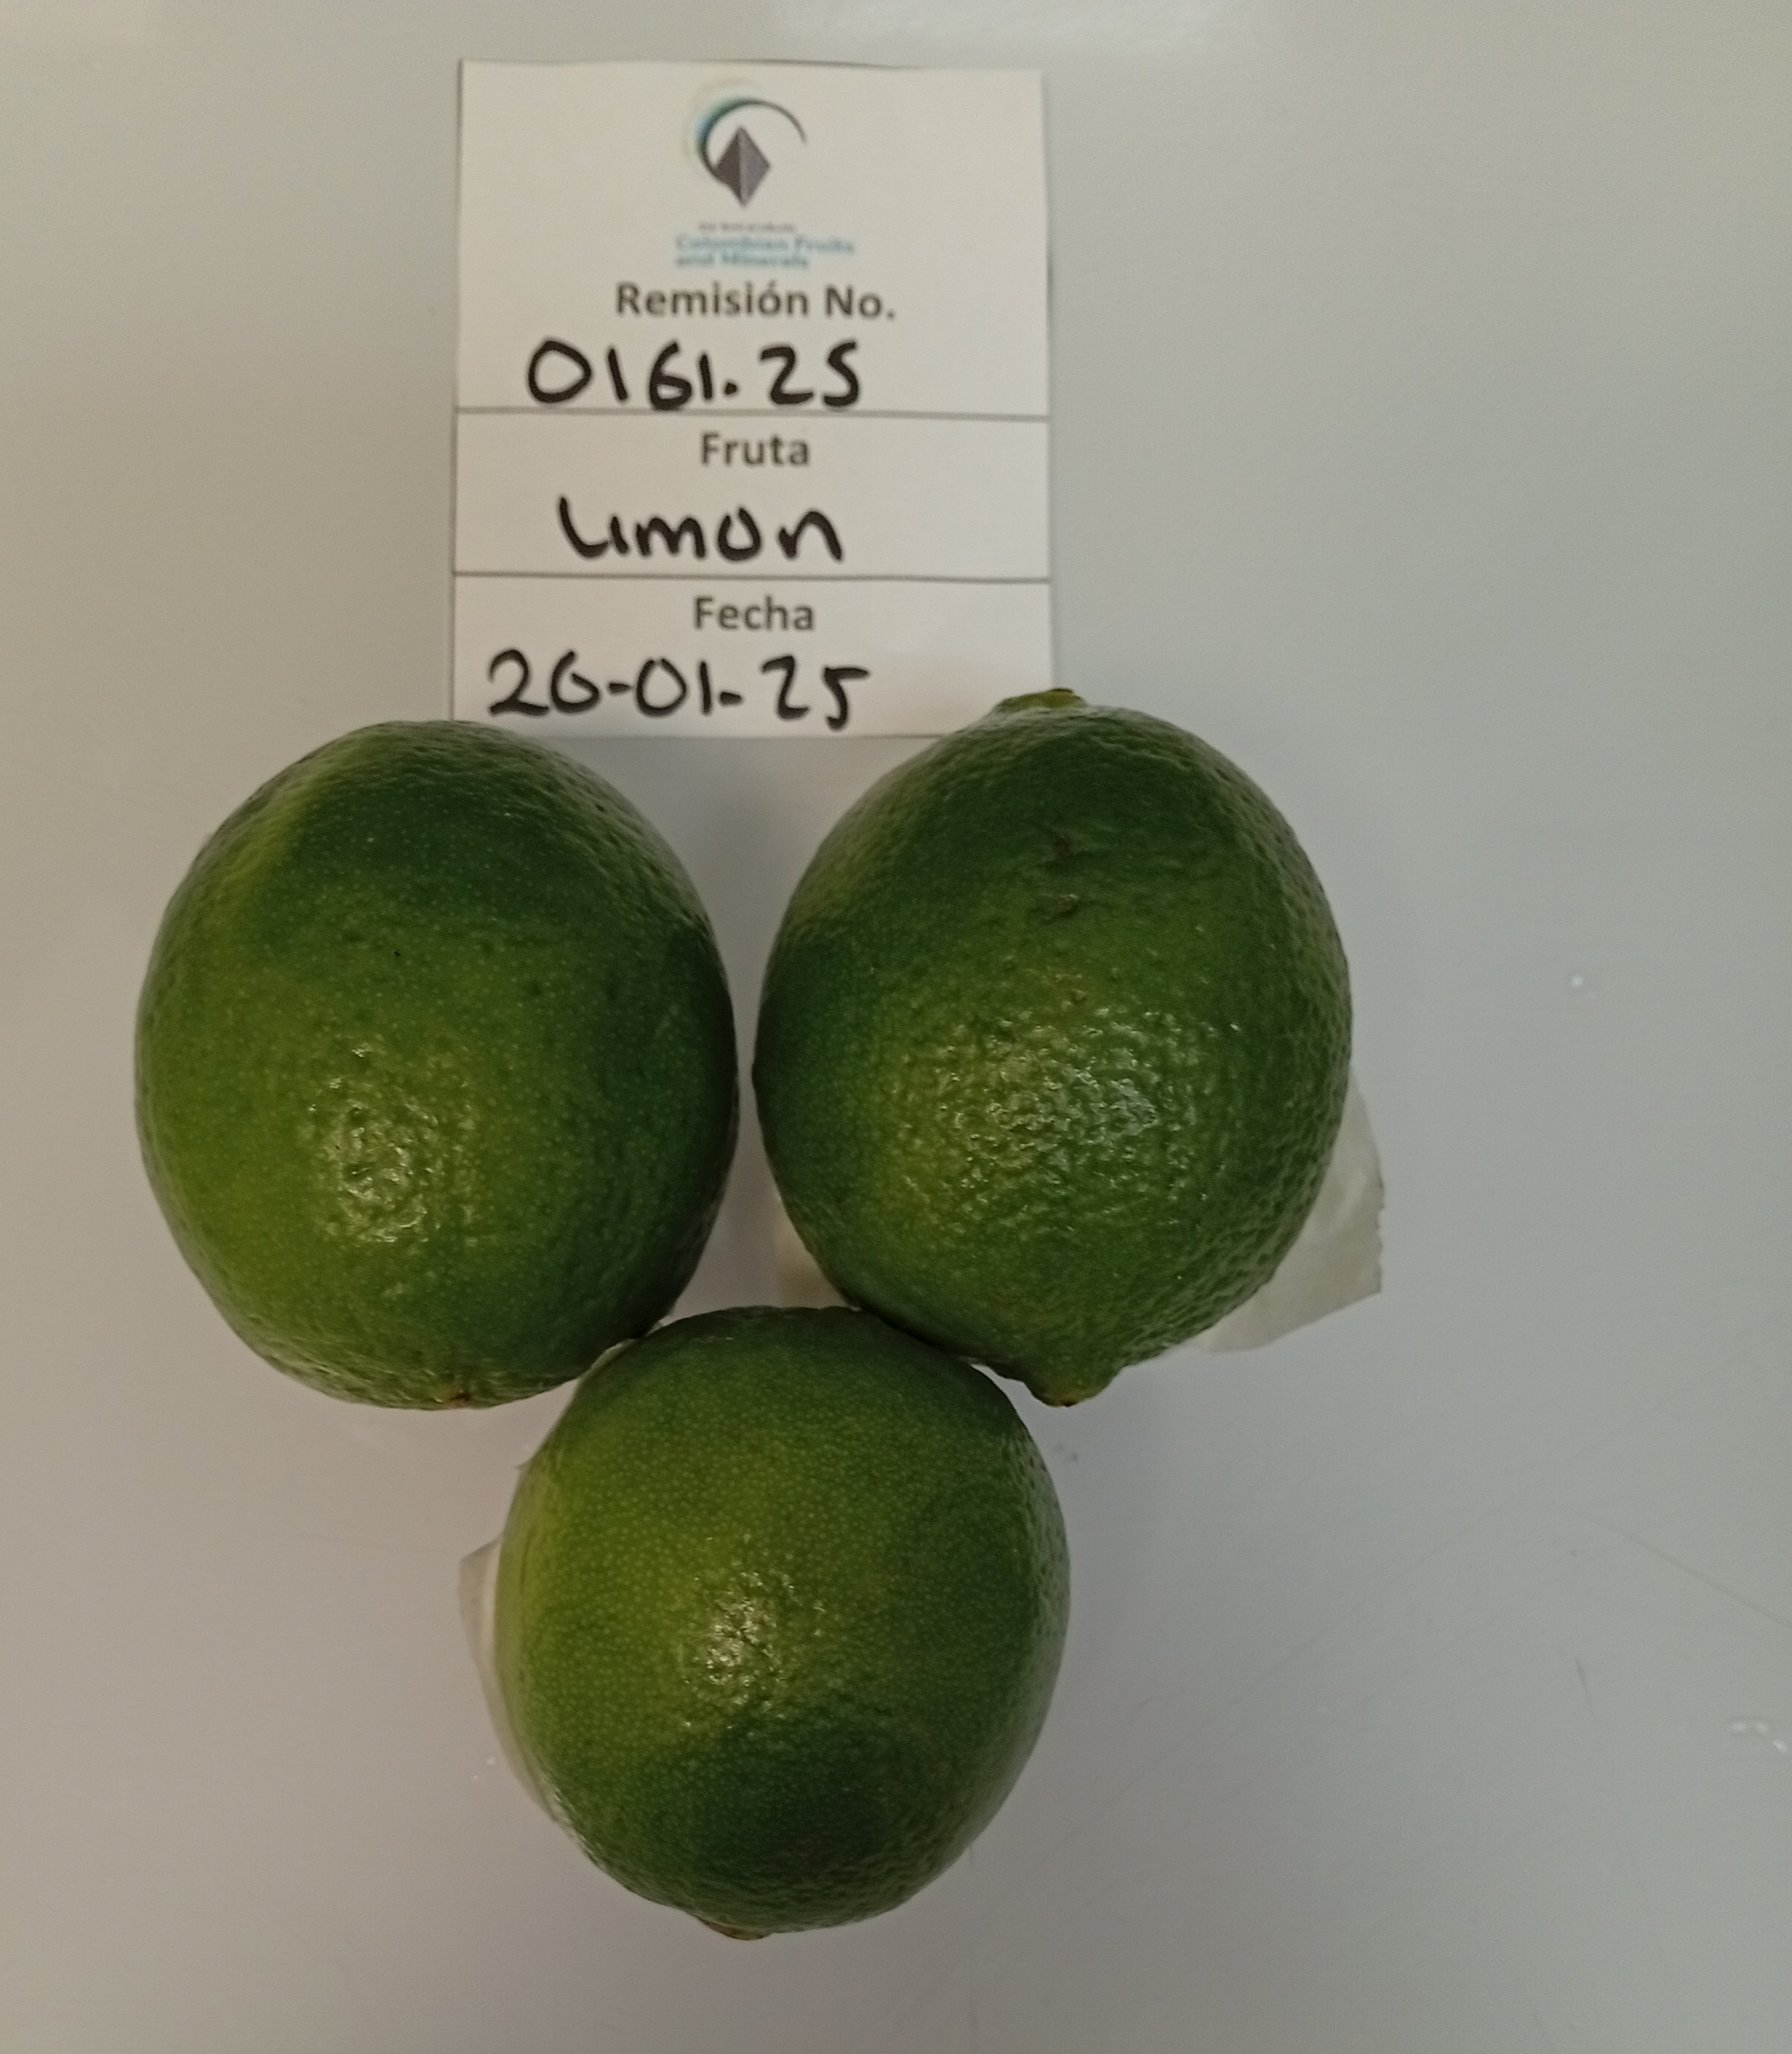 Colombian Fruits
and Minerals
Remisión No.
0161.25
Fruta
Limon
Fecha
26-01-25